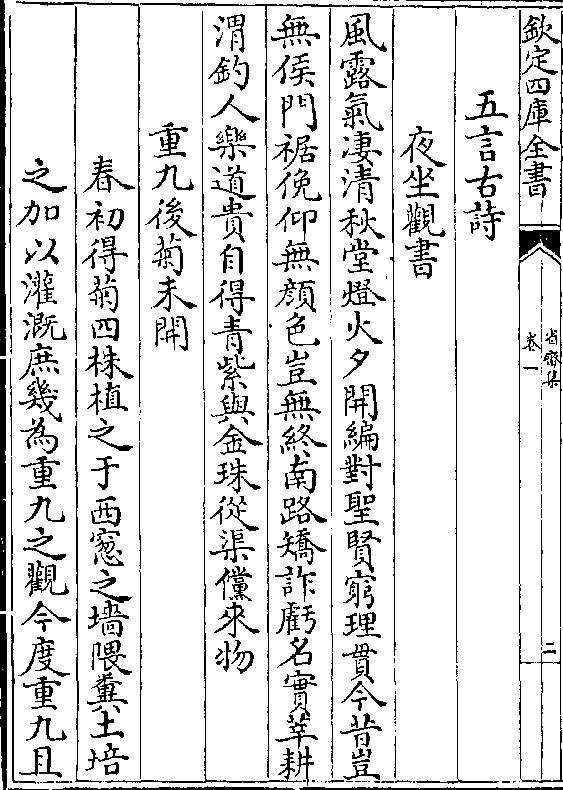 欽定四庫全書
省齋集
卷一
二
五言古詩
夜坐觀書
風露氣淒清秋堂燈火夕開編對聖賢窮理貫今昔豈
無侯門裾俛仰無顔色豈無終南路矯詐虧名實莘耕
渭釣人樂道貴自得青紫與金珠從渠儻來物
重九後菊未開
春初得菊四株植之于西窻之墻隈糞土培
之加以灌溉庶幾為重九之觀今度重九且